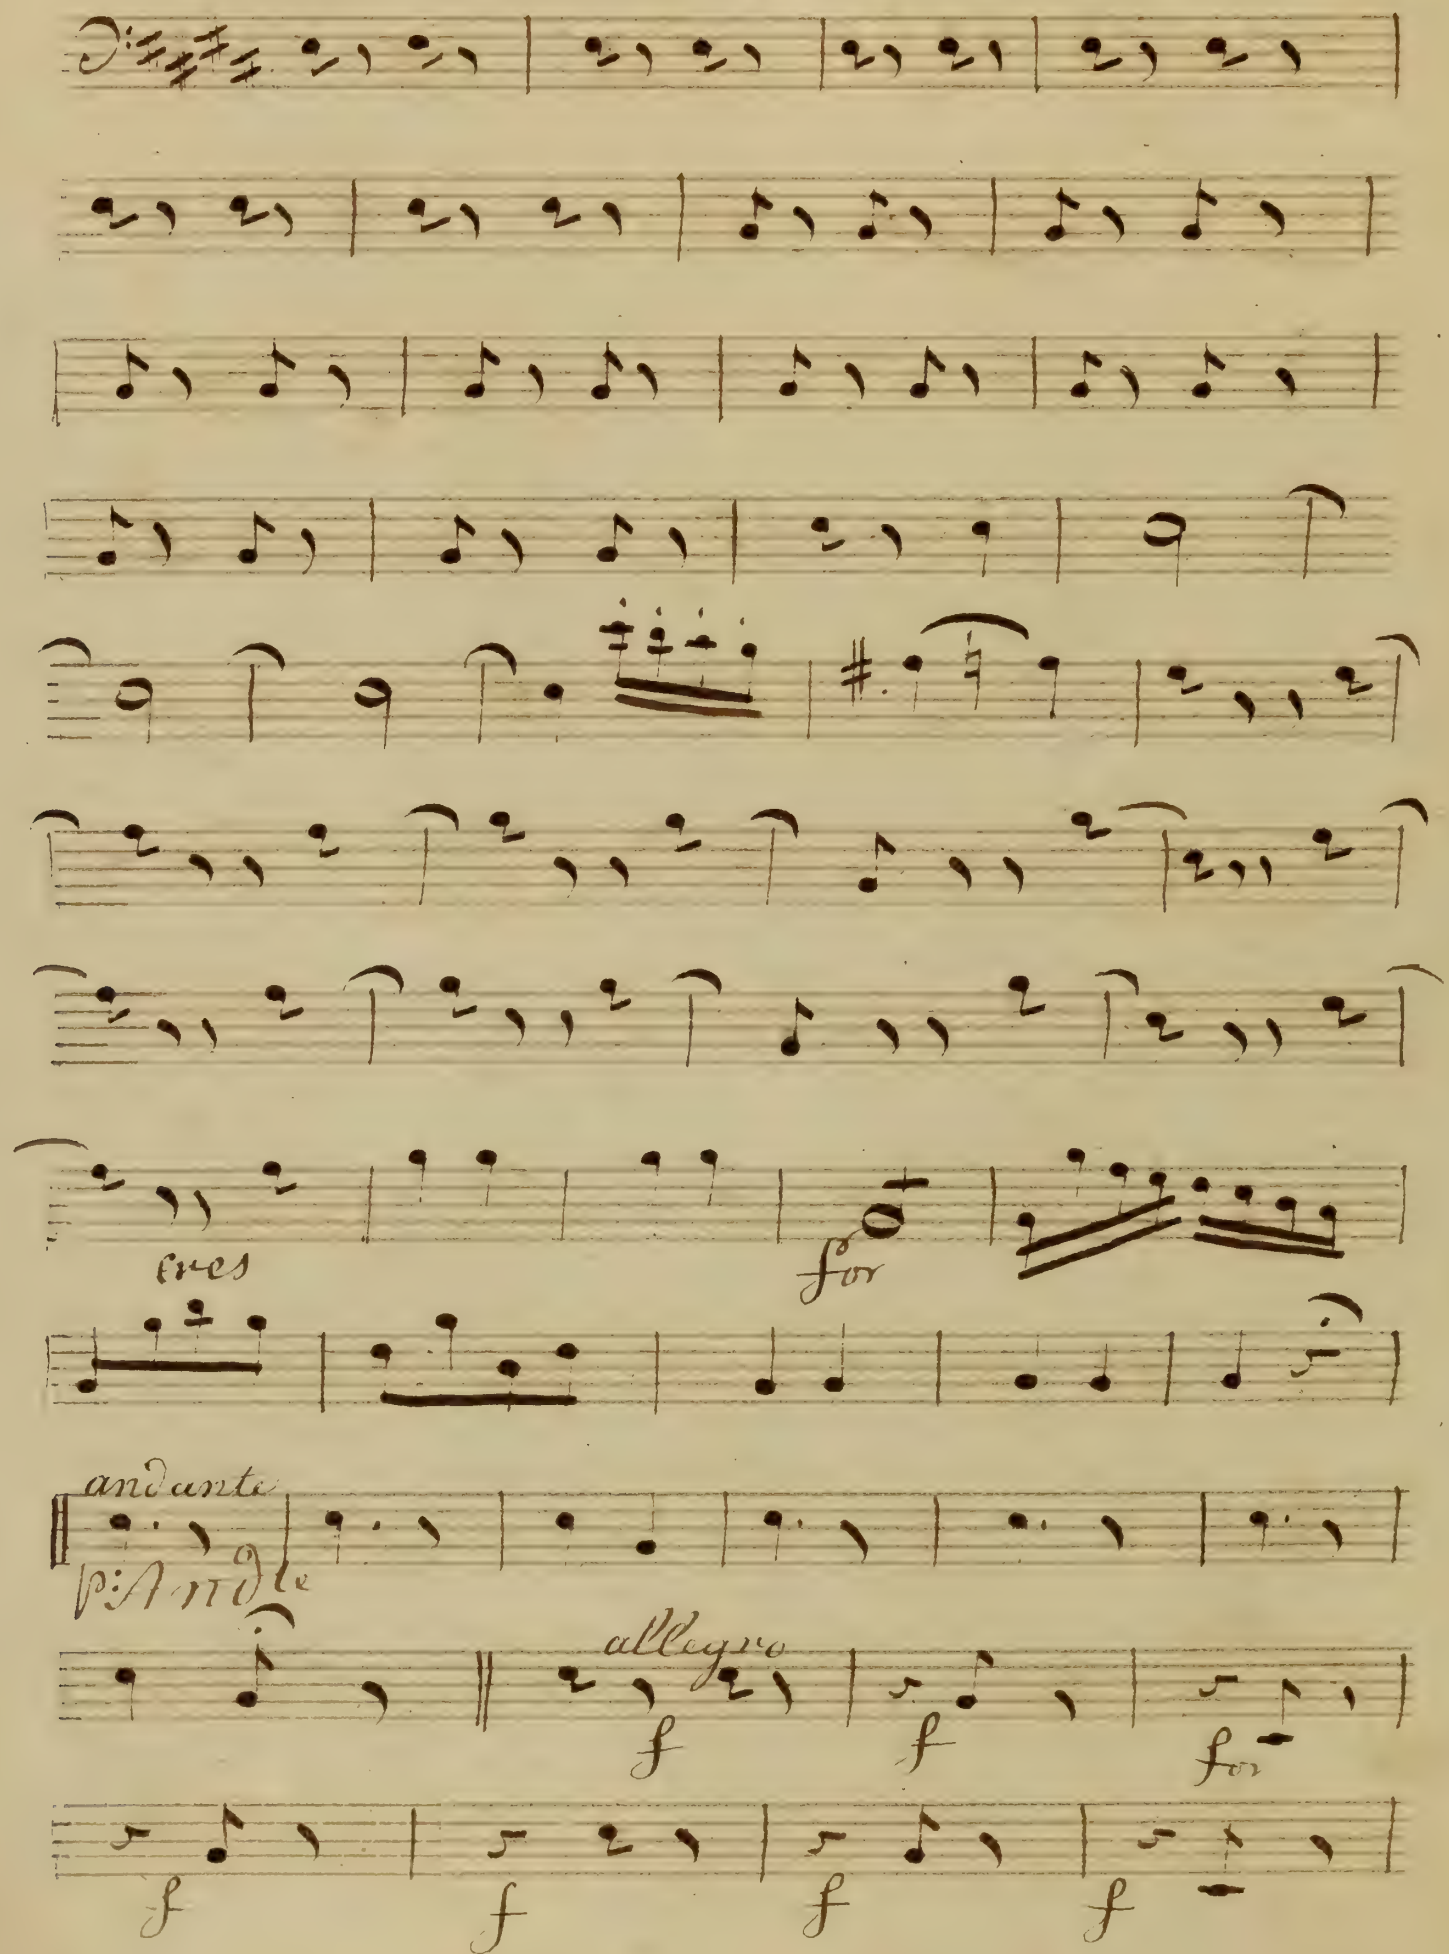 cres for
andante
p: Andte
allegro
f f for
f f f f